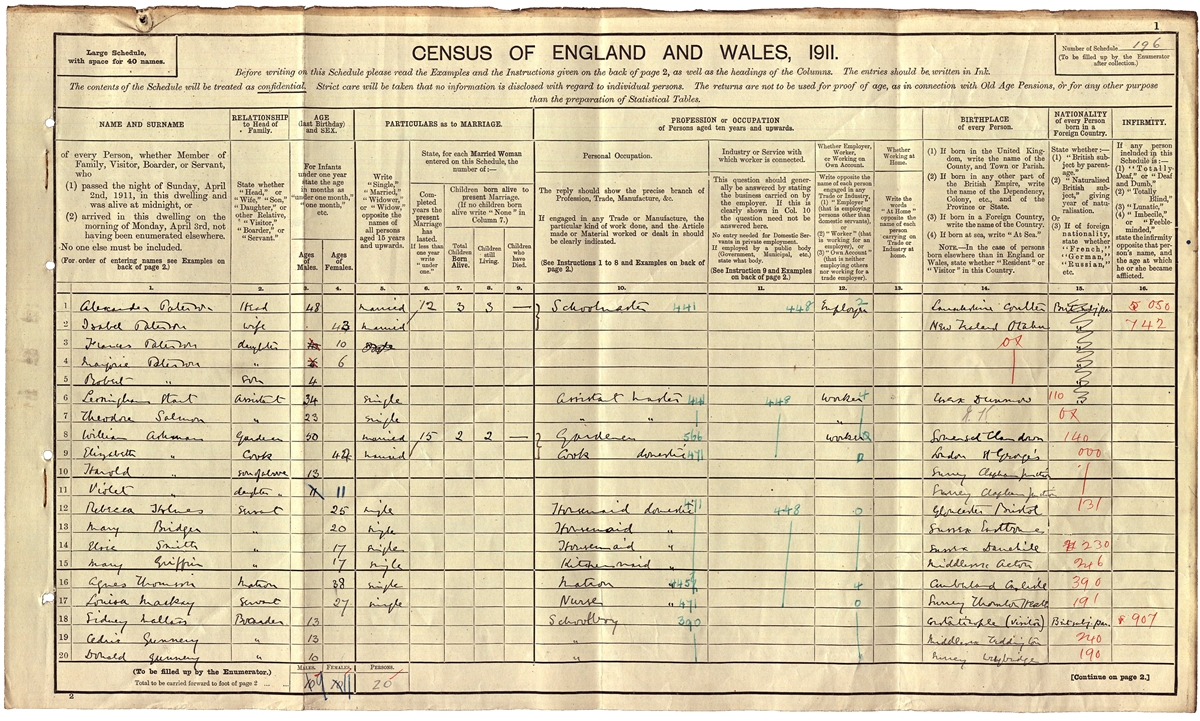 1
Large Schedule,
with space for 40 names.
CENSUS OF ENGLAND AND WALES, 1911.
Number of Schedule 196
(To be filled up by the Enumerator
after collection.)
Before writing on this Schedule please read the Examples and the Instructions given on the back of page 2, as well as the headings of the Columns. The entries should be written in Ink.
The contents of the Schedule will be treated as confidential. Strict care will be taken that no information is disclosed with regard to individual persons. The returns are not to be used for proof of age, as in connection with Old Age Pensions, or for any other purpose
than the preparation of Statistical Tables.
NAME AND SURNAME
of every Person, whether Member of
Family, Visitor, Boarder, or Servant,
who
(1) passed the night of Sunday, April
2nd, 1911, in this dwelling and
was alive at midnight, or
(2) arrived in this dwelling on the
morning of Monday, April 3rd, not
having been enumerated elsewhere.
No one else must be included.
(For order of entering names see Examples on
back of page 2.)
1.
RELATIONSHIP
to Head of
Family.
State whether
"Head," or
"Wife," "Son,"
"Daughter," or
other Relative,
"Visitor,"
"Boarder," or
"Servant."
2.
AGE
(last Birthday)
and SEX.
For Infants
under one year
state the age
in months as
"under one
month," "one
month," etc.
Ages
of
Males.
3.
Ages
of
Females.
4.
PARTICULARS as to MARRIAGE.
Write
"Single,"
"Married,"
"Widower,"
or "Widow,"
opposite the
names of
all persons
aged 15 years
and upwards.
5.
State, for each Married Woman
entered on this Schedule, the
number of:—
Completed
years the
present
Marriage
has
lasted.
If less than
one year
write
"under
one."
6.
Children born alive to
present Marriage.
(If no children born
alive write "None" in
Column 7.)
Total
Children
Born
Alive.
7.
Children
still
Living.
8.
Children
who
have
Died.
9.
PROFESSION or OCCUPATION
of Persons aged ten years and upwards.
Personal Occupation.
The reply should show the precise branch of
Profession, Trade, Manufacture, &c.
If engaged in any Trade or Manufacture, the
particular kind of work done, and the Article
made or Material worked or dealt in should
be clearly indicated.
(See Instructions 1 to 8 and Examples on back of
page 2.)
10.
Industry or Service with
which worker is connected.
This question should gener-
ally be answered by stating
the business carried on by
the employer. If this is
clearly shown in Col. 10
the question need not be
answered here.
No entry needed for Domestic Ser-
vants in private employment.
If employed by a public body
(Government, Municipal, etc.)
state what body.
(See Instruction 9 and Examples
on back of page 2.)
11.
Whether Employer,
Worker,
or Working on
Own Account.
Write opposite the
name of each person
engaged in any
Trade or Industry,
(1) "Employer"
(that is employing
persons other than
domestic servants),
or
(2) "Worker" (that
is working for an
employer), or
(3) "Own Account"
(that is neither
employing others
nor working for a
trade employer).
12.
Whether
Working at
Home.
Write the
words
"At Home"
opposite the
name of each
person
carrying on
Trade or
Industry at
home.
13.
BIRTHPLACE
of every Person.
(1) If born in the United King-
dom, write the name of the
County, and Town or Parish.
(2) If born in any other part of
the British Empire, write the
name of the Dependency,
Colony, etc., and of the
Province or State.
(3) If born in a Foreign Country,
write the name of the Country.
(4) If born at sea, write "At Sea."
NOTE.—In the case of persons
born elsewhere than in England or
Wales, state whether "Resident" or
"Visitor" in this Country.
14.
NATIONALITY
of every Person
born in a
Foreign Country.
State whether:—
(1) "British sub-
ject by parent-
age."
(2) "Naturalised
British sub-
ject," giving
year of natu-
ralisation.
Or
(3) If of foreign
nationality,
state whether
"French,"
"German,"
"Russian,"
etc.
15.
INFIRMITY.
If any person
included in this
Schedule is:—
(1) "Totally
Deaf," or "Deaf
and Dumb,"
(2) "Totally
Blind,"
(3) "Lunatic,"
(4) "Imbecile,"
or "Feeble-
minded,"
state the infirmity
opposite that per-
son's name, and
the age at which
he or she became
afflicted.
16.
1 Alexander Paterson Head 48 married 12 3 3 — Schoolmaster 441 448 Employer 2 Lanarkshire Coulter 050
2 Isabel Paterson wife 43 married New Zealand 742
3 Frances Paterson daughter 10 single ox
4 Marjorie Paterson " 6
5 Robert " Son 4
6 Assistant 34 single Assistant Master 441 448 worker 4 Essex Dunmow 110
7 Theodore Salmon " 23 single " " ox
8 William Gardener 50 married 15 2 2 — Gardener 566 worker Somerset Clandown 140
9 Elizabeth " Cook 42 married Cook domestic 471 0 London St George's 000
10 Harold " son of above 13 Surrey Clapham Junction
11 Violet " daughter " 11 Surrey Clapham Junction
12 Rebecca Holmes Servant 25 single Housemaid domestic 471 448 0 Gloucester Bristol 131
13 Mary Bridger " 20 single Housemaid " Sussex
14 Elsie Smith " 17 single Housemaid " Sussex Danehill 230
15 Mary Griffin " 17 single Kitchenmaid " Middlesex Acton 246
16 Agnes Thomson Matron 38 single Matron 445 4 Cumberland Carlisle 390
17 Louisa Mackay Servant 27 single Nurse " 471 0 Surrey Thornton Heath 191
18 Sidney Boarder 13 Schoolboy 390 (visitor) 907
19 Cedric Gunnery " 13 " Middlesex Teddington 240
20 Donald Gunnery " 10 " Surrey Weybridge 190
(To be filled up by the Enumerator.)
Total to be carried forward to foot of page 2
MALES.
FEMALES.
11
PERSONS.
20
[Continue on page 2.]
2